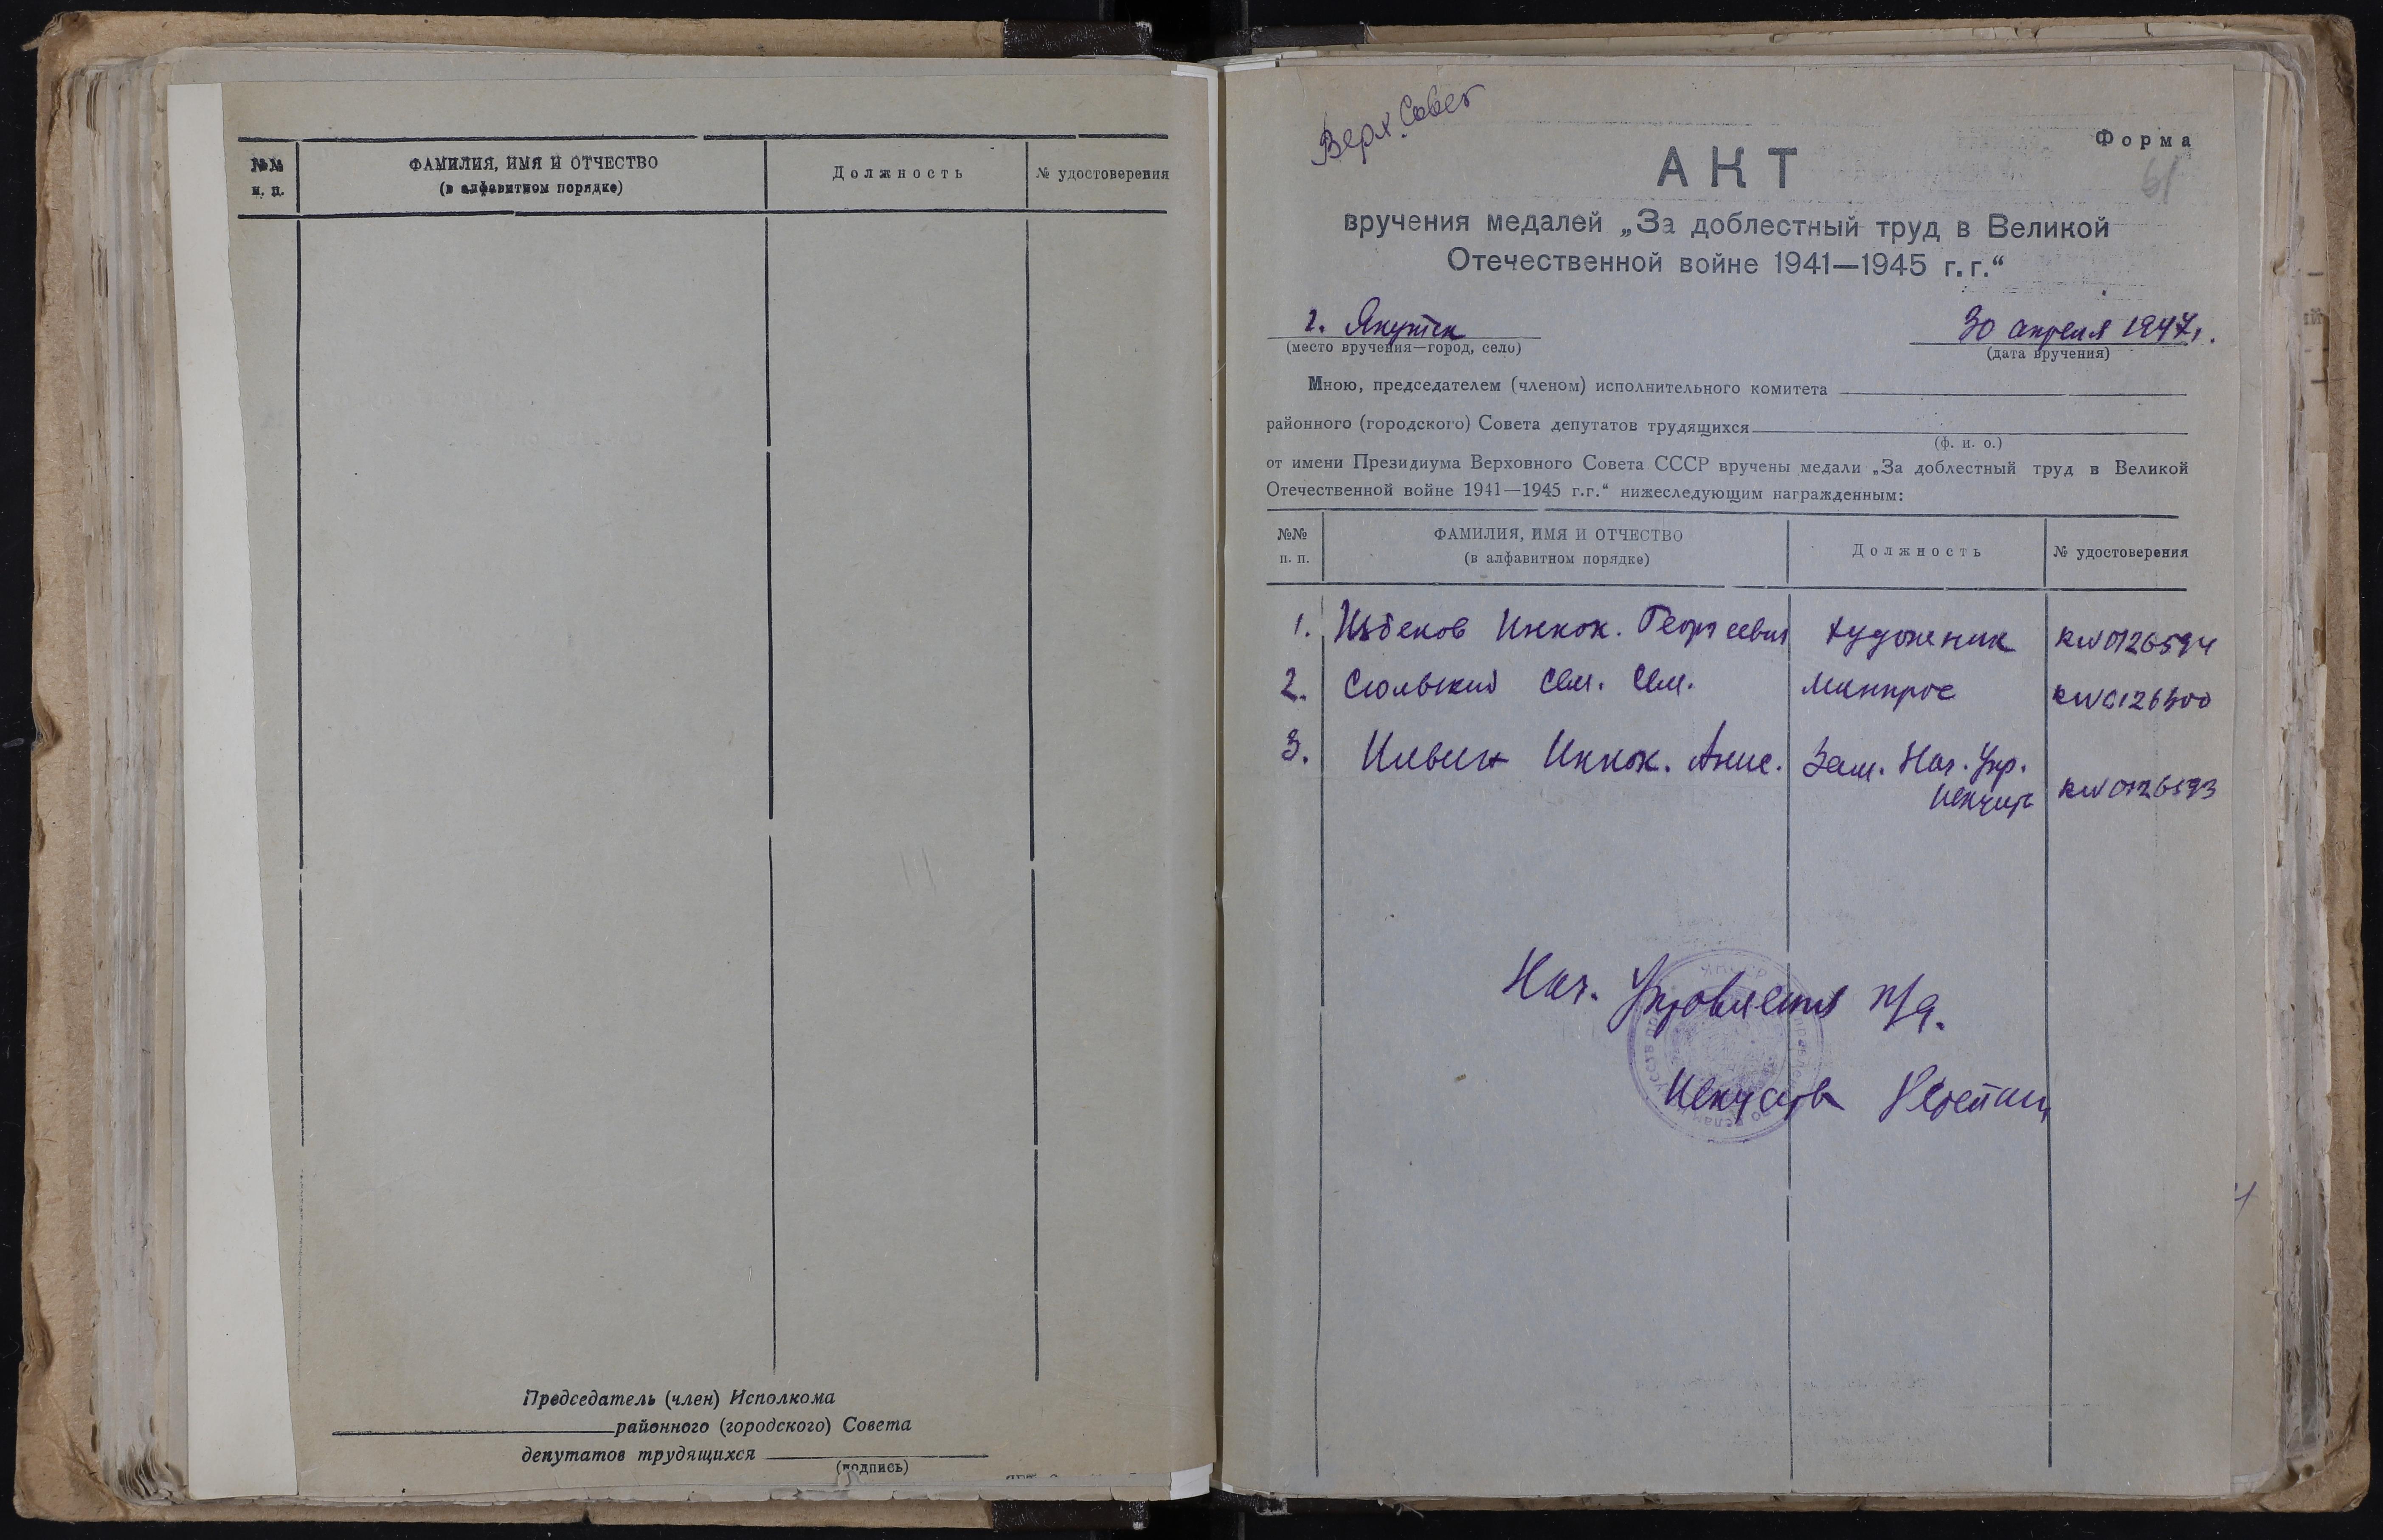 №№ п. п.
ФАМИЛИЯ, ИМЯ И ОТЧЕСТВО
(в алфавитном порядке)
Должность
№ удостоверения
Председатель (член) Исполкома
районного (городского) Совета
депутатов трудящихся
(подпись)
Верх. Совет
Форма
61
АКТ
вручения медалей „За доблестный труд в Великой
Отечественной войне 1941—1945 г.г.“
г. Якутск
30 апреля 1947 г.
(место вручения—город, село)
(дата вручения)
Мною, председателем (членом) исполнительного комитета
районного (городского) Совета депутатов трудящихся
(ф. и. о.)
от имени Президиума Верховного Совета СССР вручены медали „За доблестный труд в Великой
Отечественной войне 1941—1945 г.г.“ нижеследующим награжденным:
№№ п. п.
ФАМИЛИЯ, ИМЯ И ОТЧЕСТВО
(в алфавитном порядке)
Должность
№ удостоверения
1. Избеков Иннок. Георгиевич художник 0126594
2. Сюльский Сем. Сем. Минпрос 0126500
3. Иннок. Анис. Зам. Нач. Упр. 0126593
Искусств
Нач. Управления п/д.
Искусств